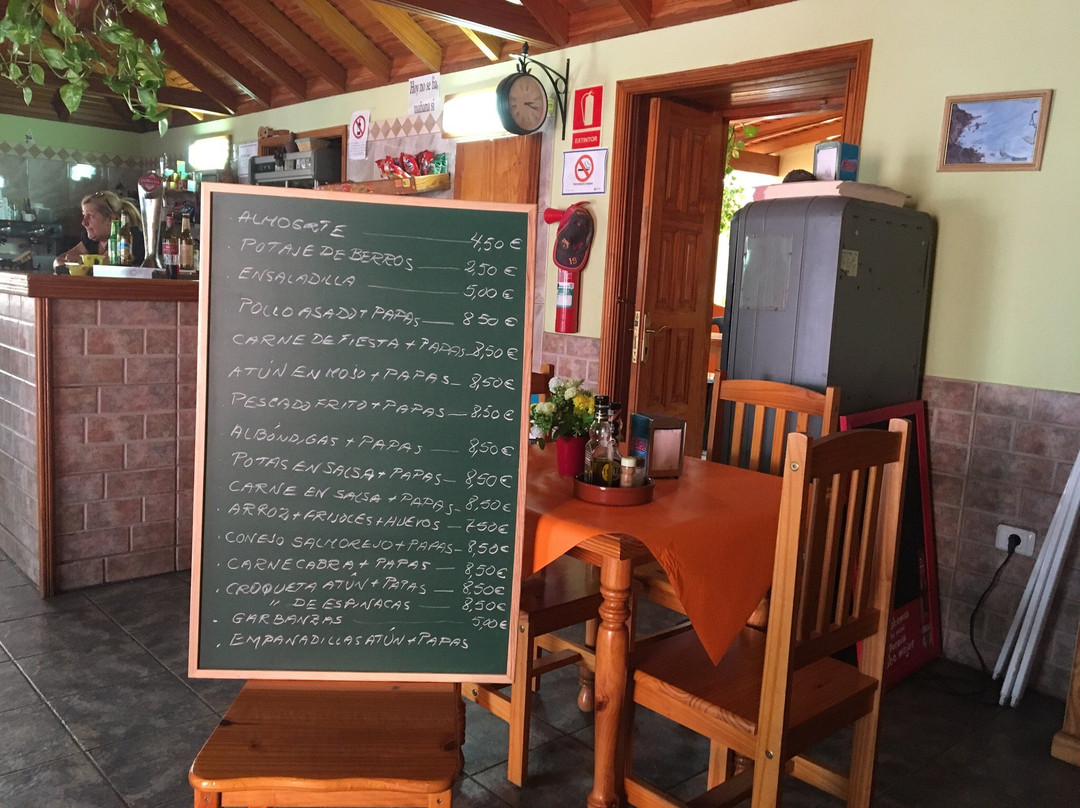 Hoy no se fía,
mañana sí
EXTINTOR
. ALMOGOTE 4,50 €
. POTAJE DE BERROS 2,50 €
. ENSALADILLA 5,00 €
POLLO ASADO + PAPAS 8,50 €
CARNE DE FIESTA + PAPAS 8,50 €
ATÚN EN MOJO + PAPAS 8,50 €
PESCADO FRITO + PAPAS 8,50 €
ALBÓNDIGAS + PAPAS 8,50 €
POTAS EN SALSA + PAPAS 8,50 €
CARNE EN SALSA + PAPAS 8,50 €
. ARROZ + FRIJOLES + HUEVOS 7,50 €
. CONEJO SALMOREJO + PAPAS 8,50 €
. CARNE CABRA + PAPAS 8,50 €
. CROQUETA ATÚN + PAPAS 8,50 €
" DE ESPINACAS 8,50 €
. GARBANZAS 5,00 €
. EMPANADILLAS ATÚN + PAPAS